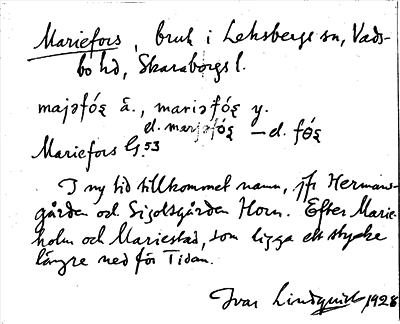 Mariefors, bruk i Leksbergs sn, Vads-
bo hd, Skaraborgs l.
majəfǫ́ʂ ä., mariəfǫ́ʂ y.
d. marjəfǫ́ʂ – d. fǿʂ
Mariefors G. 53
I ny tid tillkommet namn, jfr Hermans-
gården och Sigolsgården Horn. Efter Marie-
holm och Mariestad, som ligga ett stycke
längre ned för Tidan.
Ivar Lindquist 1928